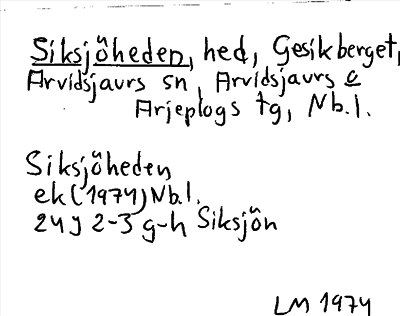 Siksjöheden, hed, Gesikberget,
Arvidsjaurs sn, Arvidsjaurs &
Arjeplogs tg, Nb.l.
Siksjöheden
ek (1974) Nb.l.
24J 2-3 g-h Siksjön
LM 1974